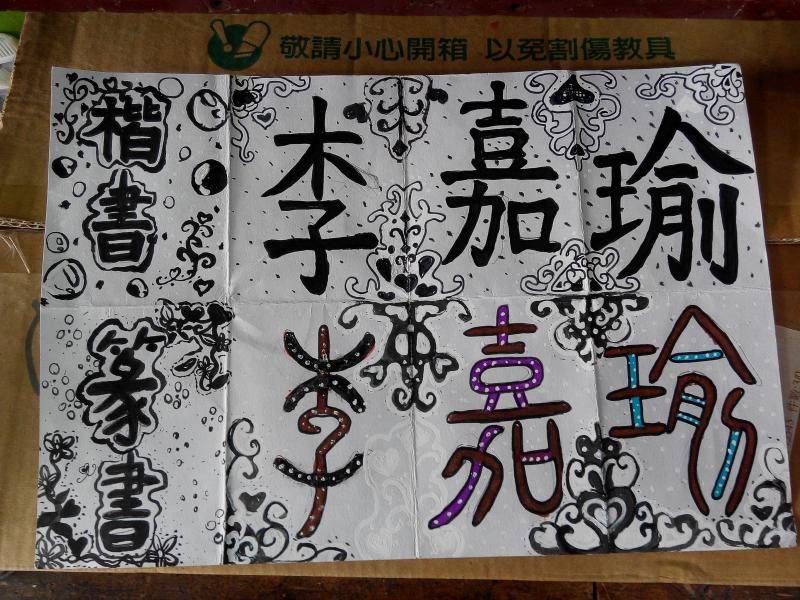 敬請小心開箱 以免割傷教具
楷書
李嘉瑜
篆書
李嘉瑜